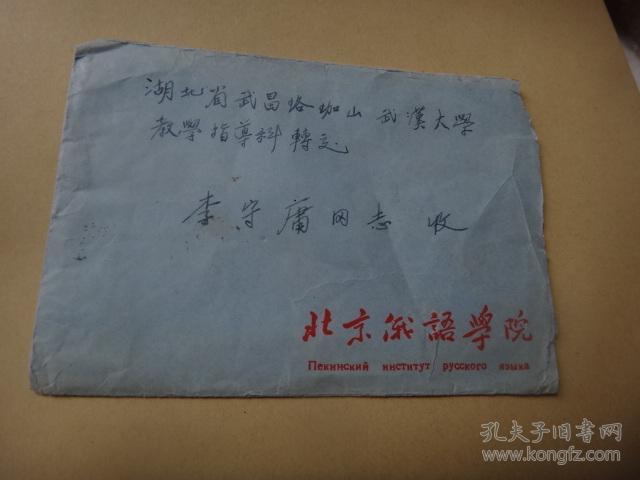 湖北省武昌珞珈山武漢大學
教學指導科轉交
李守庸同志 收
北京俄語學院
Пекинский институт русского языка
孔夫子旧书网
www.kongfz.com